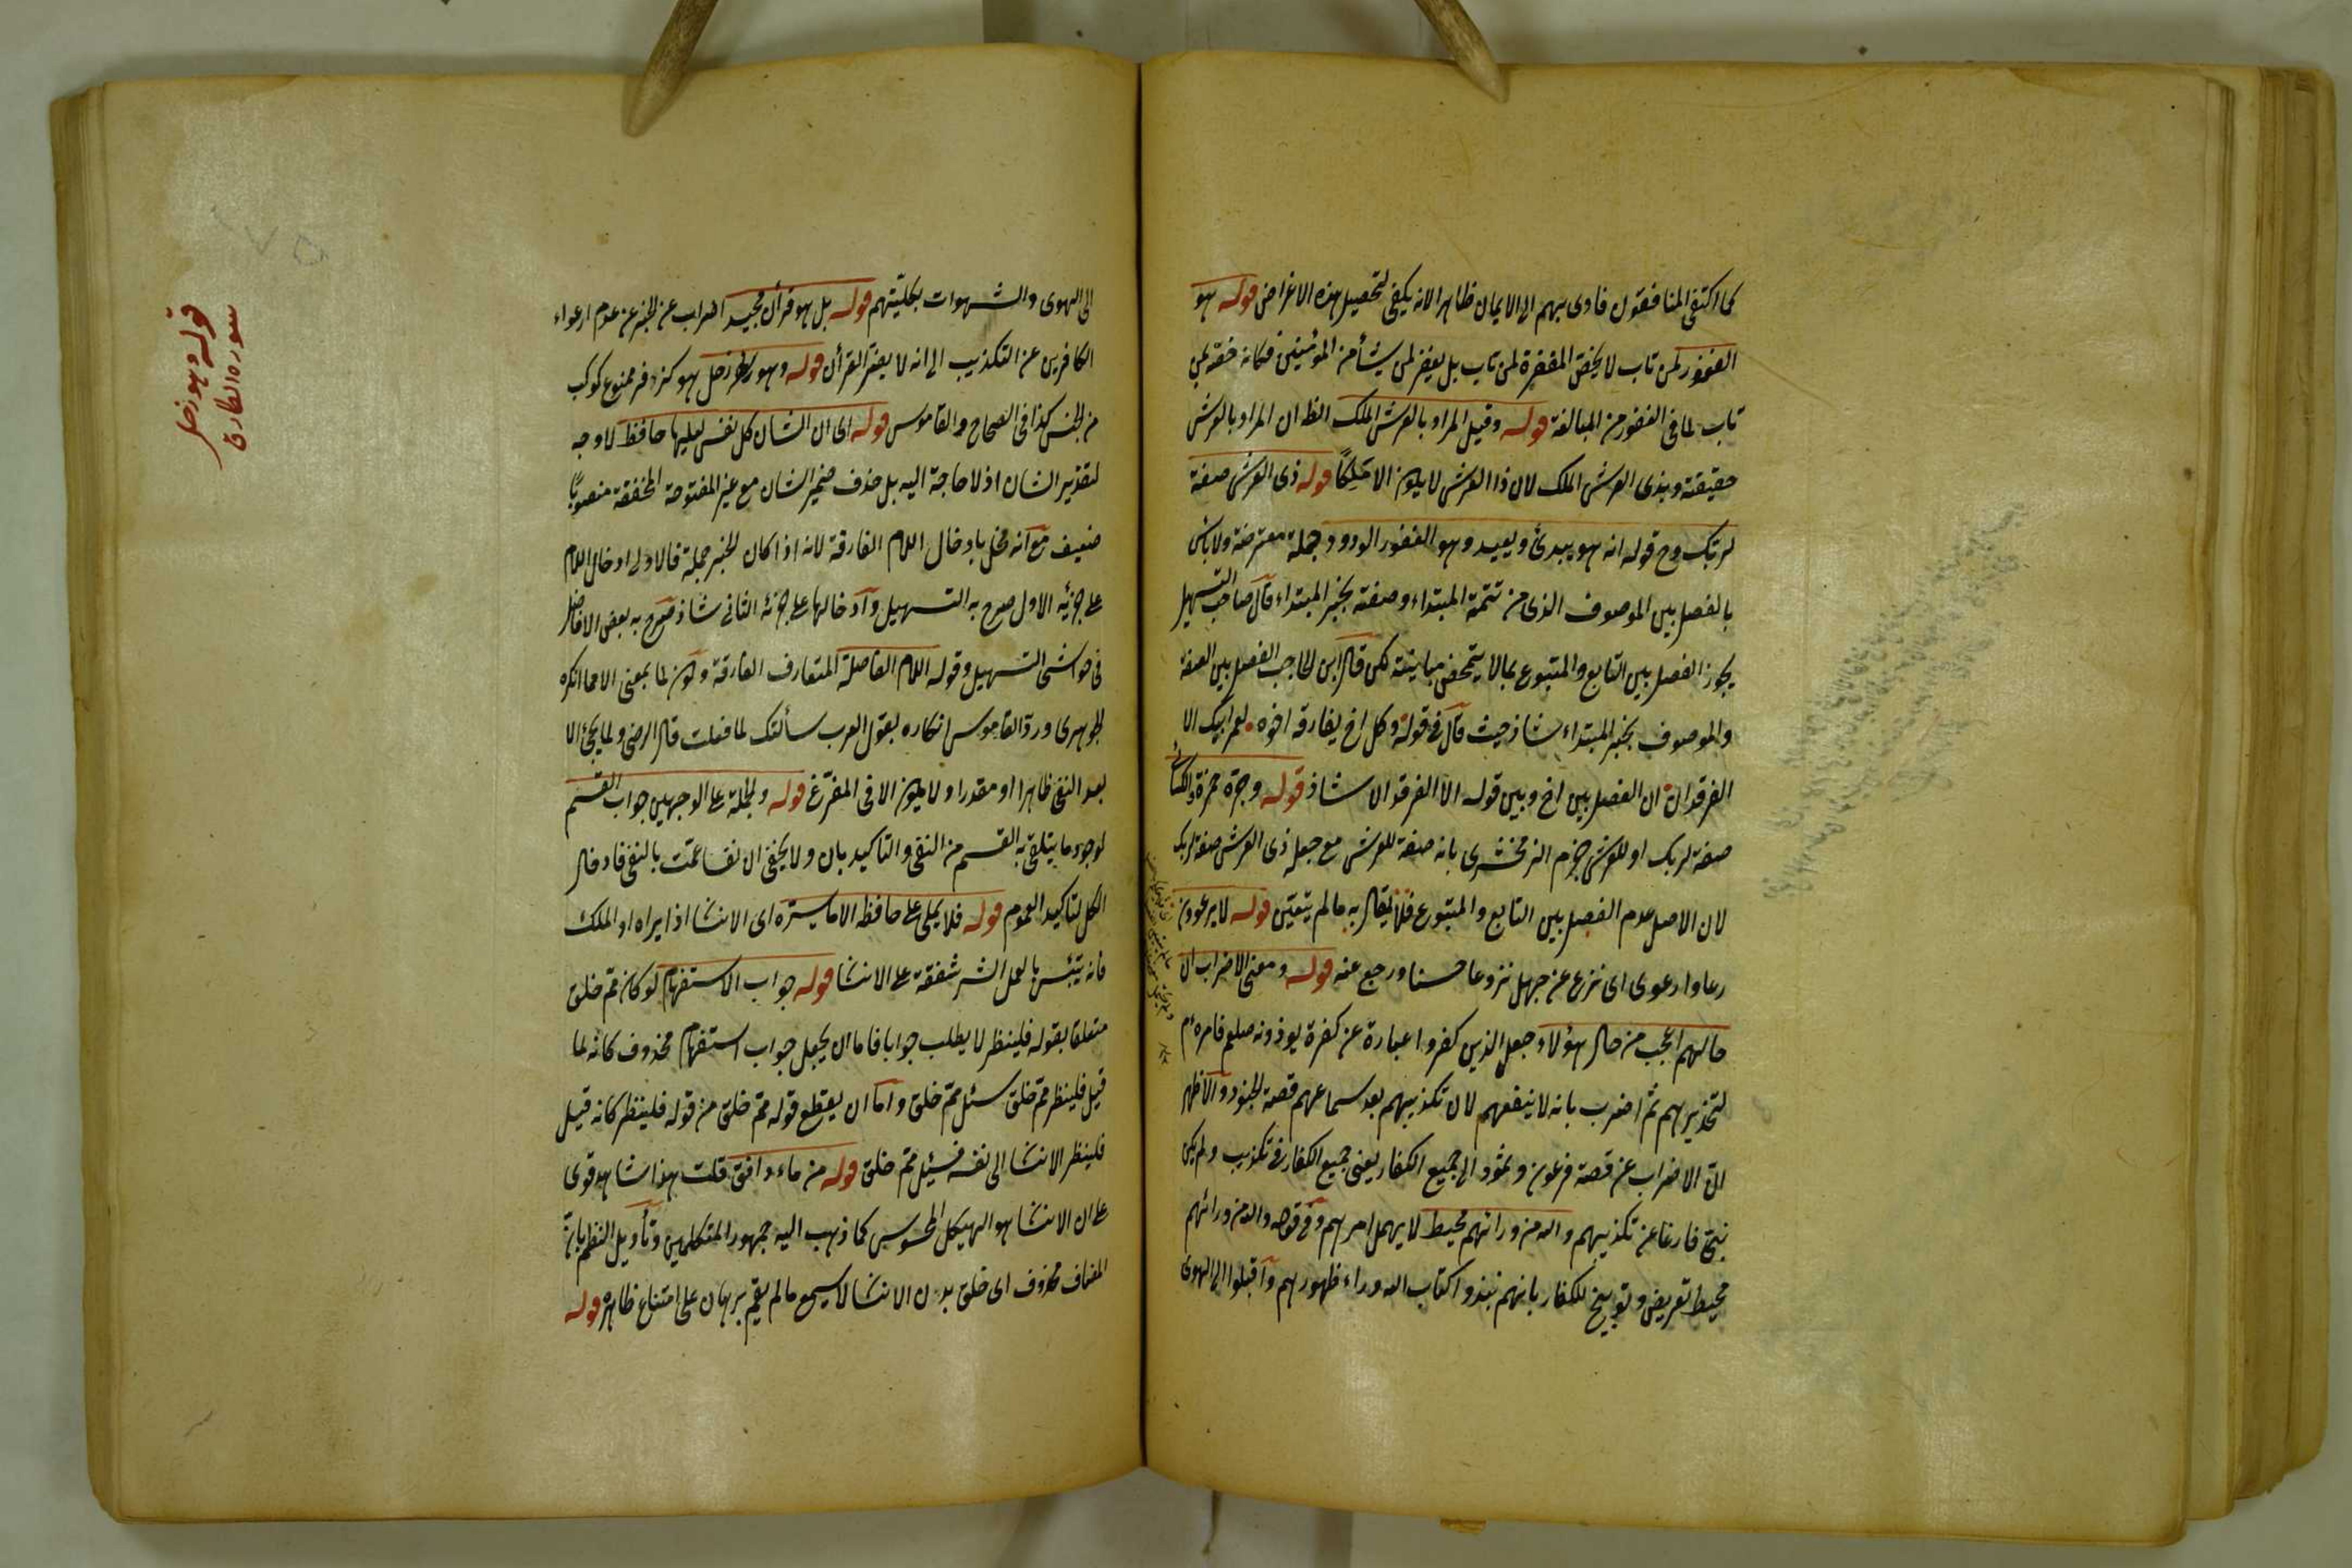 كما اكتفى المنافقون فاوى بهم الى الايمان ظاهرا لانه يكفى لتحصيل هذه الاغراض قوله هو
الغفور لمن تاب لا يخص المغفرة لمن تاب بل يغفر لمن يشأ من المؤمنين فكانه خصه لمن
تاب لما فى الغفور من المبالغة قوله وقيل المراد بالعرش الملك الظ ان المراد بالعرش
حقيقته وبذى العرش الملك لان ذا العرش لا يكون الا مَلِكًا قوله ذى العرش صفة
لربك وح قوله انه هو يبدئ ويعيد وهو الغفور الودود جملة معترضة ولا باس
بالفصل بين الموصوف الذى من تتمة المبتداء وصفته بخبر المبتداء قال صاحب التسهيل
يجوز الفصل بين التابع والمتبوع بما لا يتمحض مباينته لكن قال ابن الحاجب الفصل بين الصفة
والموصوف بخبر المبتداء شاذ حيث قال فى قوله وكل اخ يفارقه اخوه لعمر ابيك الا
الفرقدان ان الفصل بين اخ وبين قوله الا الفرقدان شاذ قوله وجره حمزة والكسائى
صفة لربك او للعرش جزم الزمخشرى بانه صفة للعرش مع جعل ذى العرش صفة لربك
لان الاصل عدم الفصل بين التابع والمتبوع فلا يقال به ما لم يتعين قوله لا يرعوون
رعا وارعوى اى نزع عن جهل نزوعا حسنا ورجع عنه قوله ومعنى الاضراب ان
حالهم اعجب من حال هؤلاء جعل الذين كفروا عبارة عن كفرة يوذونه صلعم فامره م
لتحذيرهم ثم اضرب بانه لا ينفعهم لان تكذيبهم بعد سماعهم قصة الجنود والاظهر
ان الاضراب عن قصة فرعون وثمود الى جميع الكفار يعنى جميع الكفار فى تكذيب ولم يكن
نبى فارغا عن تكذيبهم والله من ورائهم محيط لا يهمل امرهم وفى قوله والله من ورائهم
محيط تعريض وتوبيخ للكفار بانهم نبذوا كتاب الله وراء ظهورهم واقبلوا الى الهوى
الى الهوى والشهوات بكليتهم قوله بل هو قرأن مجيد اضراب عن الخبر عن عدم ارعواء
الكافرين عن التكذيب الى انه لا يضر القرأن قوله وهو زحل هو كزفر ممنوع كوكب
من الخنس كذا فى الصحاح والقاموس قوله اى ان الشان كل نفس لعليها حافظ لا وجه
لتقدير الشان اذ لا حاجة اليه بل حذف ضمير الشان مع غير المفتوحة المخففة منصوبًا
ضعيف مع انه مخل بادخال اللام الفارقة لانه اذا كان الخبر جملة فالاولى ادخال اللام
على جزئه الاول صرح به التسهيل وادخالها على جزئه الثانى شاذ صرح به بعض الافاضل
فى حواشى التسهيل وقوله اللام الفاصلة المتعارف الفارقة وكون لما بمعنى الا مما انكره
الجوهرى ورد القاموس انكاره بقول العرب سألتك لما فعلت قال الرضى ولما يجئ الا
بعد النفى ظاهرا او مقدرا ولا يكون الا فى المفرغ قوله والجملة على الوجهين جواب القسم
لوجود ما يتلقى به القسم من النفى والتاكيد بان ولا يخفى ان نفسا عمت بالنفى فادخال
الكل لتاكيد العموم قوله فلا يملى على حافظه الا ما يسره اى الانشا اذا يراه او الملك
فانه يبتئس بالعمل الشر شفقة على الانشا قوله جواب الاستفهام لو كان مم خلق
متعلقا بقوله فلينظر لا يطلب جوابا فاما ان يجعل جواب استفهام محذوف كانه لما
قيل فلينظر مم خلق سئل مم خلق واما ان يقطع قوله مم خلق من قوله فلينظر كانه قيل
فلينظر الانشا الى نفسه فسئل مم خلق قوله من ماء دافق قلت هذا شاهد قوى
على ان الانشا هو الهيكل المحسوس كما ذهب اليه جمهور المتكلمين وتأويل النظم بان
المضاف محذوف اى خلق بدن الانشا لا يسمع ما لم يقم برهان على امتناع ظاهره قوله
سورة الطارق
قوله وهو زحل